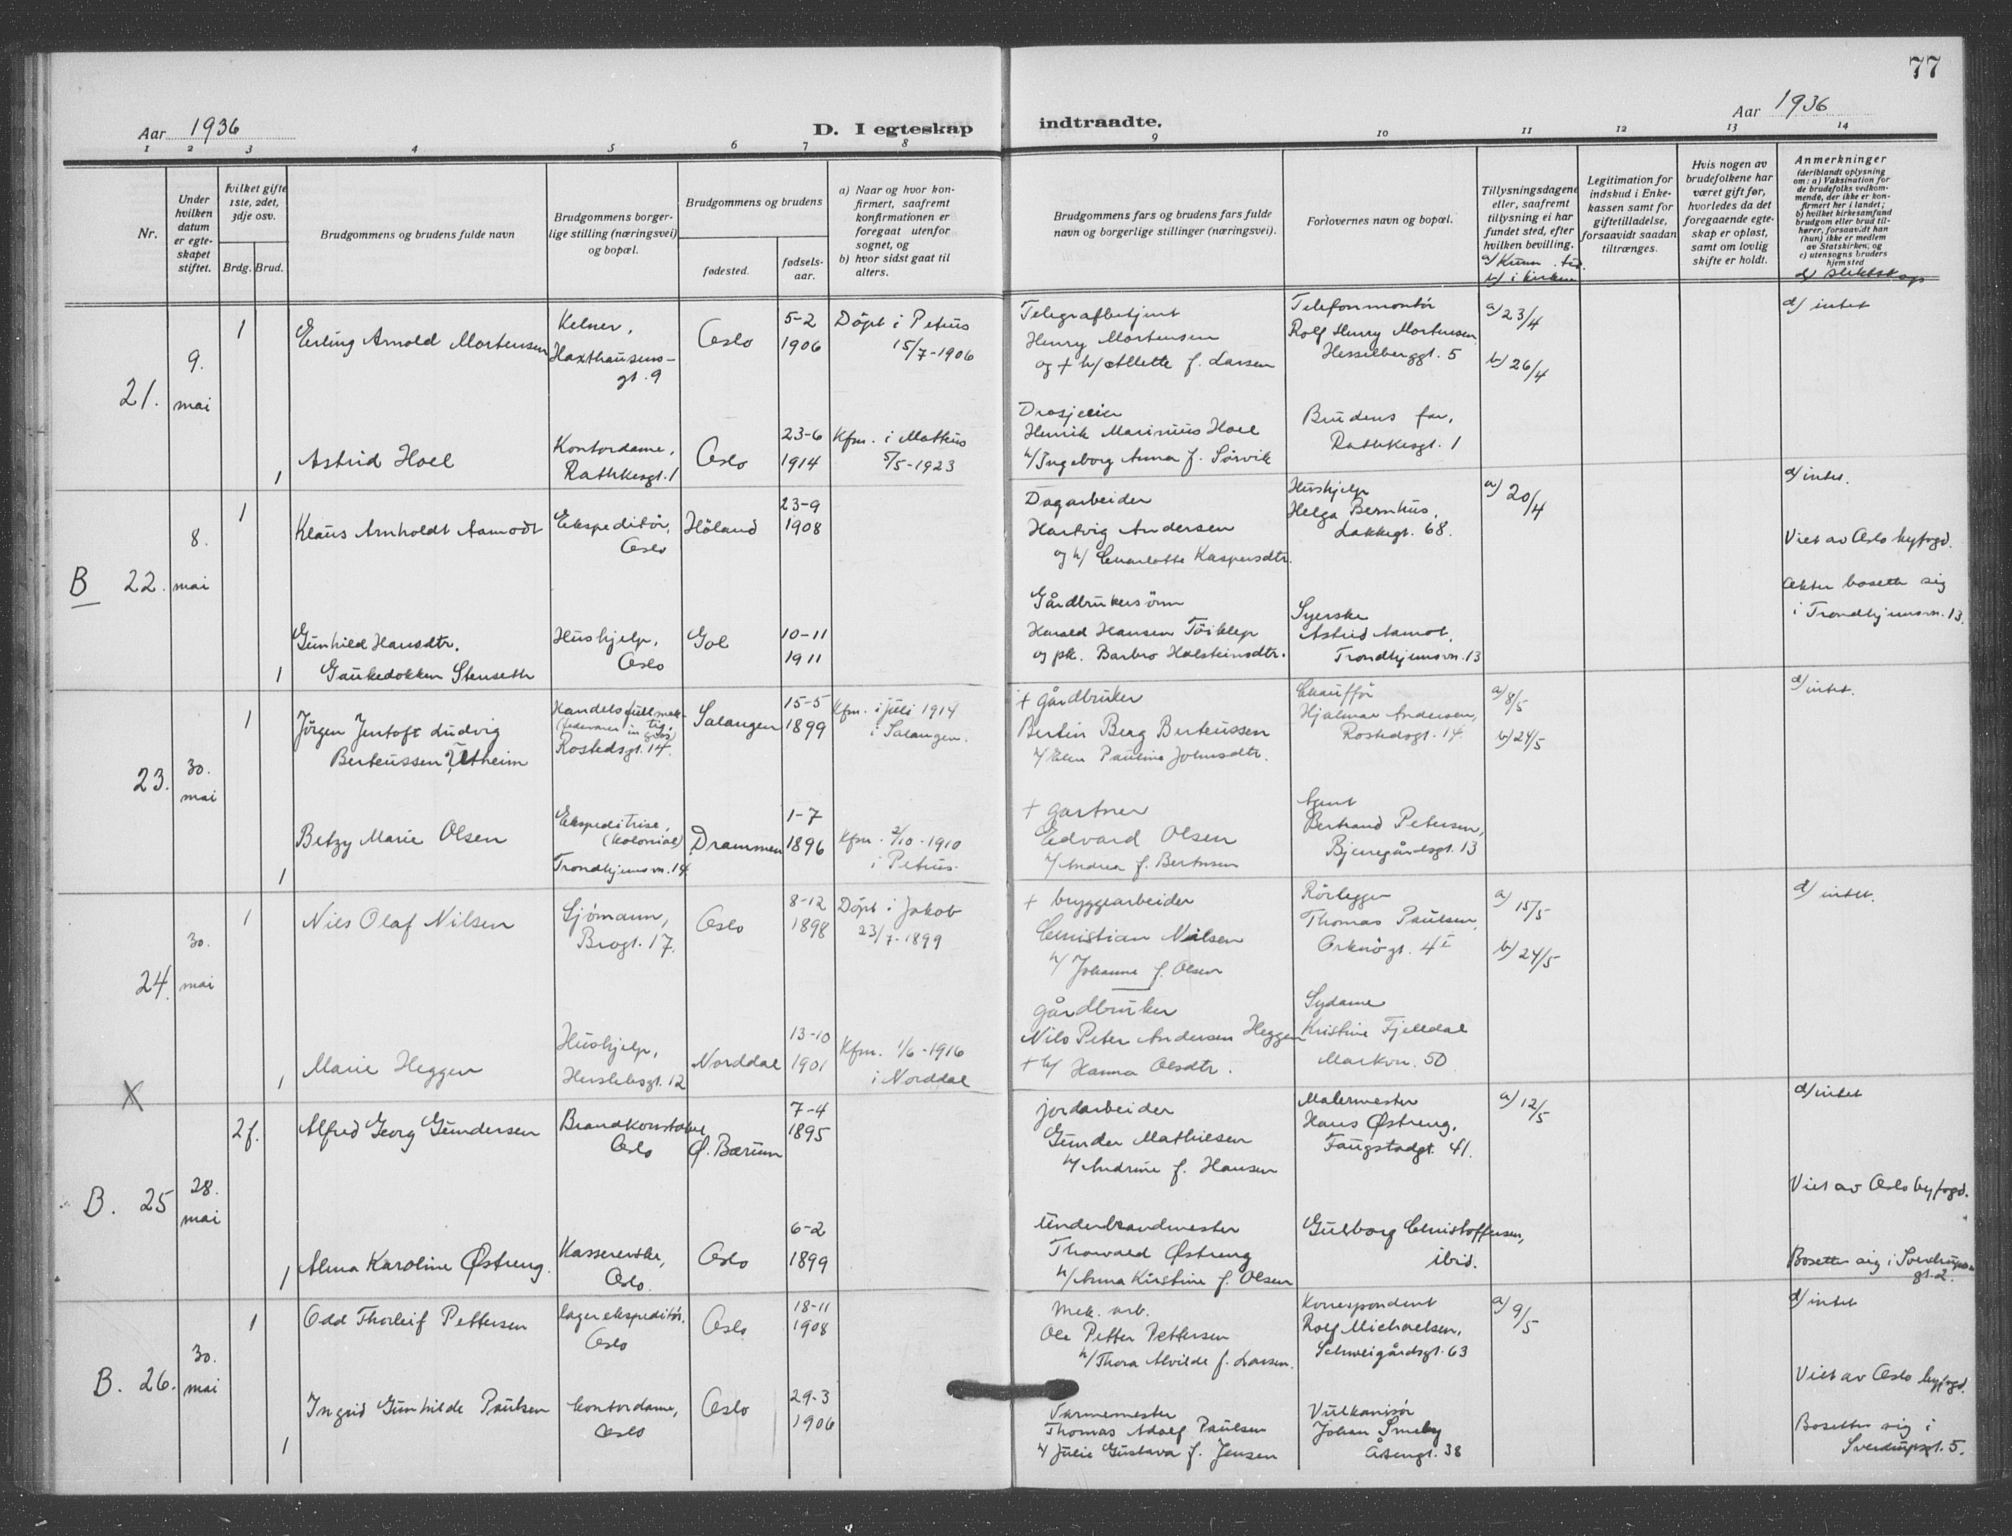 77
Aar 1936
D. I egteskap
indtraadte.
Aar 1936
1 2 3 4 5 6 7 8 9 10 11 12 13 14
Nr.
Under
hvilken
datum
er egte-
skapet
stiftet.
hvilket gifte
1ste, 2det,
3dje osv.
Brdg. Brud.
Brudgommens og brudens fulde navn
Brudgommens borger-
lige stilling (næringsvei)
og bopæl.
Brudgommens og brudens
fødested.
fødsels-
aar.
a) Naar og hvor kon-
firmert, saafremt
konfirmationen er
foregaat utenfor
sognet, og
b) hvor sidst gaat til
alters.
Brudgommens fars og brudens fars fulde
navn og borgerlige stillinger (næringsvei).
Forlovernes navn og bopæl.
Tillysningsdagene
eller, saafremt
tillysning ei har
fundet sted, efter
hvilken bevilling.
b) i kirken
Legitimation for
indskud i Enke-
kassen samt for
giftetilladelse,
forsaavidt saadan
tiltrænges.
Hvis nogen av
brudefolkene har
været gift før,
hvorledes da det
foregaaende egte-
skap er opløst,
samt om lovlig
skifte er holdt.
Anmerkninger
(deriblandt oplysning
om: a) Vaksination for
de brudefolks vedkom-
mende, der ikke er kon-
firmert her i landet;
b) hvilket kirkesamfund
brudgom eller brud til-
hører, forsaavidt han
(hun) ikke er medlem
av Statskirken; og
c) utensogns bruders
hjemsted
d) slektskap
21.
9.
mai
1
Erling Arnold Mortensen
Kelner,
Haxthausens-
gt. 9
Oslo
5-2
1906
Döpt i Petrus
15/7-1906
Telegrafbetjent
Henry Mortensen
og + h/ Allette f. Larsen
Telefonmontör
Rolf Henry Mortensen
Hesselberggt. 5
a) 23/4
b) 26/4
d) intet
1
Astrid Hoel
Kontordame,
Rathkesgt. 1
Oslo
23-6
1914
Kfm. i Matteus
5/5-1923
Drosjeeier
Henrik Marinius Hoel
h/ Ingeborg Anna f. Sörvik
Brudens far,
Rathkesgt. 1
B 22.
8.
mai
1
Klaus Arnholdt Aamodt
Ekspeditör,
Oslo
Höland
23-9
1908
Dagarbeider
Hartvig Andersen
og h/ Charlotte Kaspersdtr.
Hushjelp
Helga Bernhus,
Lakkegt. 68.
a) 20/4
d) intet.
Viet av Oslo byfogd.
Akter bosette sig
i Trondhjemsvn. 13.
1
Gunhild Hansdtr.
Gaukedokken Stenseth
Hushjelp,
Oslo
Gol
10-11
1911
Gårdbrukersönn
Harald Hansen Töiklep
og pk. Barbro Holsteinsdtr.
Syerske
Astrid Aamot,
Trondhjemsvn. 13
23.
30.
mai
1
Jörgen Jentoft Ludvig
Berteussen Utheim
Handelsfullmek-
tig.
Rostedsgt. 14.
Salangen
15-5
1899
Kfm. i juli 1914
i Salangen.
+ gårdbruker
Bertin Berg Berteussen
h/ Elen Pauline Johnsdtr.
Chaufför
Hjalmar Andersen,
Rostedsgt. 14.
a) 8/5
b) 24/5
d) intet.
1
Betzy Marie Olsen
Ekspeditrise,
(kolonial)
Trondhjemsvn. 14
Drammen
1-7
1896
Kfm. 2/10-1910
i Petrus.
+ gartner
Edvard Olsen
h/ Andrea f. Berntsen
Agent
Bertrand Petersen,
Bjerregårdsgt. 13
24.
30.
mai
1
Nils Olaf Nilsen
Sjömann,
Brogt. 17.
Oslo
8-12
1898
Döpt i Jakob
23/7-1899
+ bryggearbeider
Christian Nilsen
h/ Johanne f. Olsen
Rörlegger
Thomas Paulsen,
Orknögt. 4 I
a) 15/5
b) 24/5
d) intet.
1
Marie Heggen
Hushjelp,
Herslebsgt. 12
Norddal
13-10
1901
Kfm. 1/6-1916
i Norddal
gårdbruker
Nils Peter Andersen Heggen
+ h/ Hanna Olsdtr.
Sydame
Kristine Fjelldal
Markvn. 50
X
B. 25
28.
mai
2 f.
Alfred Georg Gundersen
Brandkonstabel
Oslo
Ø. Bærum
7-4
1895
jordarbeider
Gunder Mathiesen
h/ Andrine f. Hansen
Malermester
Hans Østreng,
Faugstadgt. 41.
a) 12/5
d) intet
Viet av Oslo byfogd.
Bosetter sig i Sverdrups-
gt. 2.
1
Alma Karoline Østreng.
Kassererske,
Oslo.
Oslo
6-2
1899
Underbrandmester
Thorvald Østreng
h/ Anna Kirstine f. Olsen
Gulborg Christoffersen,
ibid.
B. 26.
30.
mai
1
Odd Thorleif Pettersen
lagerekspeditör,
Oslo
Oslo
18-11
1908
Mek. arb.
Ole Petter Pettersen
h/ Thora Alvilde f. Larsen.
Korrespondent
Rolf Michaelsen,
Schweigårdsgt. 63
a) 9/5
d) intet
Viet av Oslo byfogd.
Bosetter sig i
Sverdrupsgt. 5.
1
Ingrid Gunhilde Paulsen
kontordame,
Oslo
Oslo
29-3
1906
Varmemester
Thomas Adolf Paulsen
h/ Julie Gustava f. Jensen
Vulkanisör
Johan Smeby
Åsengt. 38